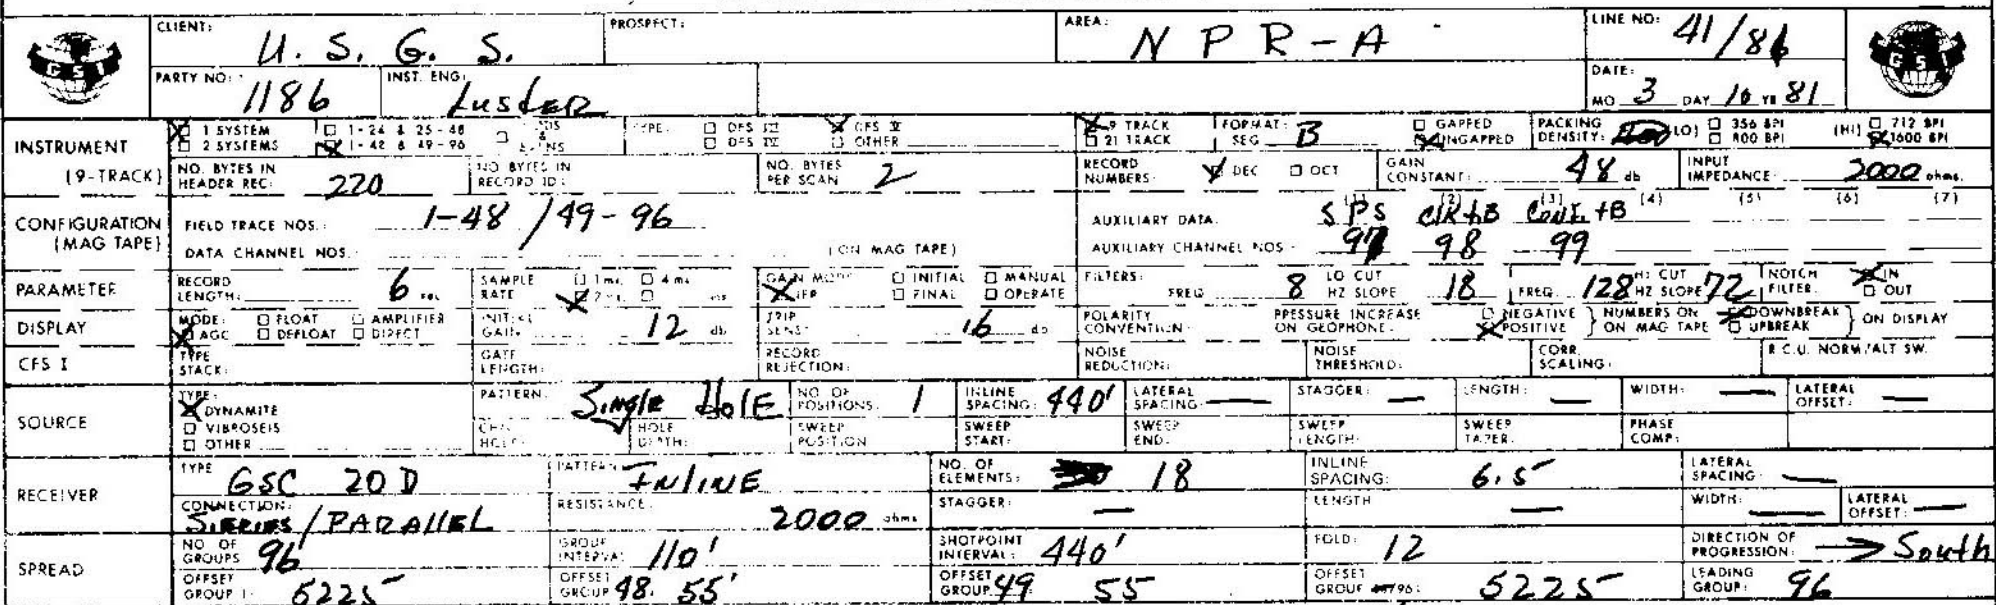 CLIENT: U. S. G. S. PROSPECT: AREA: N P R - A LINE NO: 41/86
GSI GSI
PARTY NO: 1186 INST. ENG: Luster DATE: MO 3 DAY 10 YR 81
INSTRUMENT 1 SYSTEM 1-24 & 25-48 TYPE: DFS III DFS V 9 TRACK FORMAT: GAPPED PACKING (LO) 356 BPI (HI) 712 BPI
2 SYSTEMS 1-48 & 49-96 DFS IV OTHER 21 TRACK SEG B UNGAPPED DENSITY: 800 BPI 1600 BPI
(9-TRACK) NO. BYTES IN HEADER REC: 220 NO BYTES IN RECORD ID: NO. BYTES PER SCAN 2 RECORD NUMBERS: DEC OCT GAIN CONSTANT: 48 db INPUT IMPEDANCE 2000 ohms.
CONFIGURATION FIELD TRACE NOS.: 1-48 / 49-96 AUXILIARY DATA: (1) SPS (2) CLK tB (3) CONF. tB (4) (5) (6) (7)
(MAG TAPE) DATA CHANNEL NOS.: (ON MAG TAPE) AUXILIARY CHANNEL NOS - 97 98 99
PARAMETER RECORD LENGTH: 6 SAMPLE RATE 1 ms. 4 ms 2 ms. GAIN MODE INITIAL MANUAL IFP FINAL OPERATE FILTERS: FREQ 8 LO CUT HZ SLOPE 18 FREQ. 128 HI CUT HZ SLOPE 72 NOTCH FILTER. IN OUT
DISPLAY MODE: FLOAT AMPLIFIER AGC DEFLOAT DIRECT INITIAL GAIN 12 db TRIP SENS: 16 db POLARITY CONVENTION: PRESSURE INCREASE ON GEOPHONE: NEGATIVE POSITIVE NUMBERS ON MAG TAPE DOWNBREAK UPBREAK ON DISPLAY
CFS I TYPE STACK: GATE LENGTH: RECORD REJECTION: NOISE REDUCTION: NOISE THRESHOLD: CORR. SCALING: R.C.U. NORM/ALT SW.
SOURCE TYPE: DYNAMITE PATTERN: Single HolE NO. OF POSITIONS: 1 INLINE SPACING: 440' LATERAL SPACING: — STAGGER: — LENGTH: — WIDTH: — LATERAL OFFSET: —
VIBROSEIS OTHER HOLE DEPTH: SWEEP POSITION SWEEP START: SWEEP END: SWEEP LENGTH: SWEEP TAPER: PHASE COMP:
RECEIVER TYPE GSC 20 D PATTERN INLINE NO. OF ELEMENTS: 18 INLINE SPACING: 6.5 LATERAL SPACING: —
CONNECTION: SERIES/PARALLEL RESISTANCE: 2000 ohms STAGGER: — LENGTH — WIDTH: — LATERAL OFFSET: —
SPREAD NO OF GROUPS 96 GROUP INTERVAL 110' SHOTPOINT INTERVAL: 440' FOLD: 12 DIRECTION OF PROGRESSION: → South
OFFSET GROUP 1: 5225 OFFSET GROUP 48. 55' OFFSET GROUP 49 55 OFFSET GROUP 96: 5225 LEADING GROUP: 96